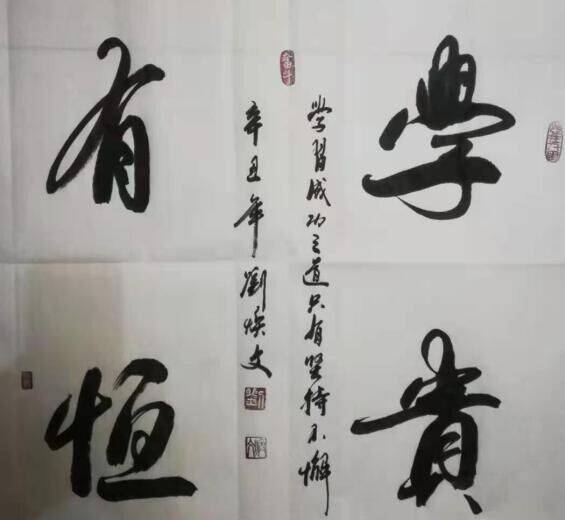 學貴
有恒
学習成功之道只有坚持不懈
辛丑年劉焕文